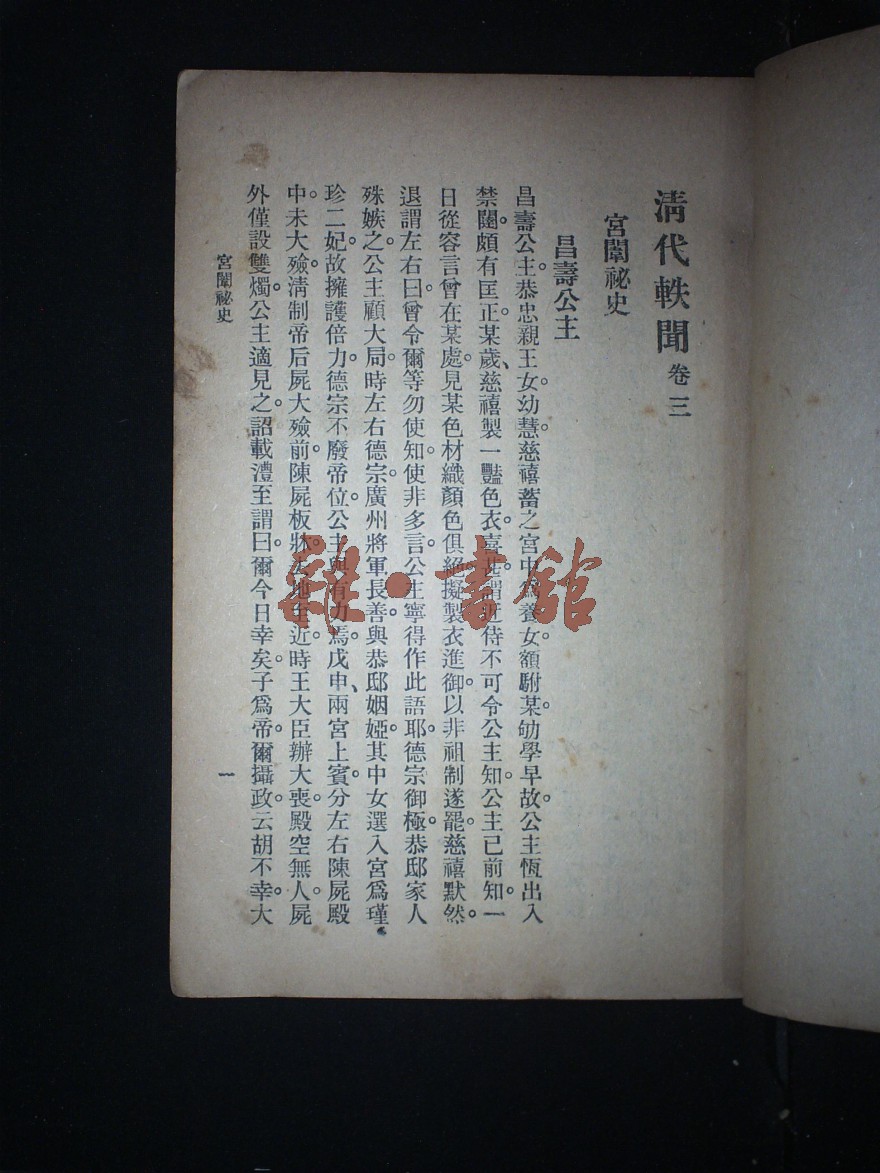 清代軼聞 卷三
宮闈祕史
昌壽公主
昌壽公主。恭忠親王女。幼慧。慈禧蓄之宮中。爲養女。額駙某。幼學早。故公主恆出入
禁闥。頗有匡正。某歲、慈禧製一豔色衣。喜甚。謂近待不可令公主知。公主已前知。一
日從容言曾在某處。見某色材織顏色俱絕。擬製衣進御。以非祖制遂罷。慈禧默然。
退謂左右曰。曾令爾等勿使知。使非多言。公主寧得作此語耶。德宗御極。恭邸家人
殊嫉之。公主顧大局。時左右德宗。廣州將軍長善。與恭邸姻婭。其中女選入宮爲瑾
珍二妃。故擁護倍力。德宗不廢帝位。公主與有力焉。戊申、兩宮上賓。分左右陳屍殿
中。未大殮。清制帝后屍大殮前。陳屍板牀。去地至近。時王大臣辦大喪。殿空無人。屍
外僅設雙燭。公主適見之。詔載灃至。謂曰。爾今日幸矣。子爲帝。爾攝政。云胡不幸。大
宮闈祕史
一
雜·書館